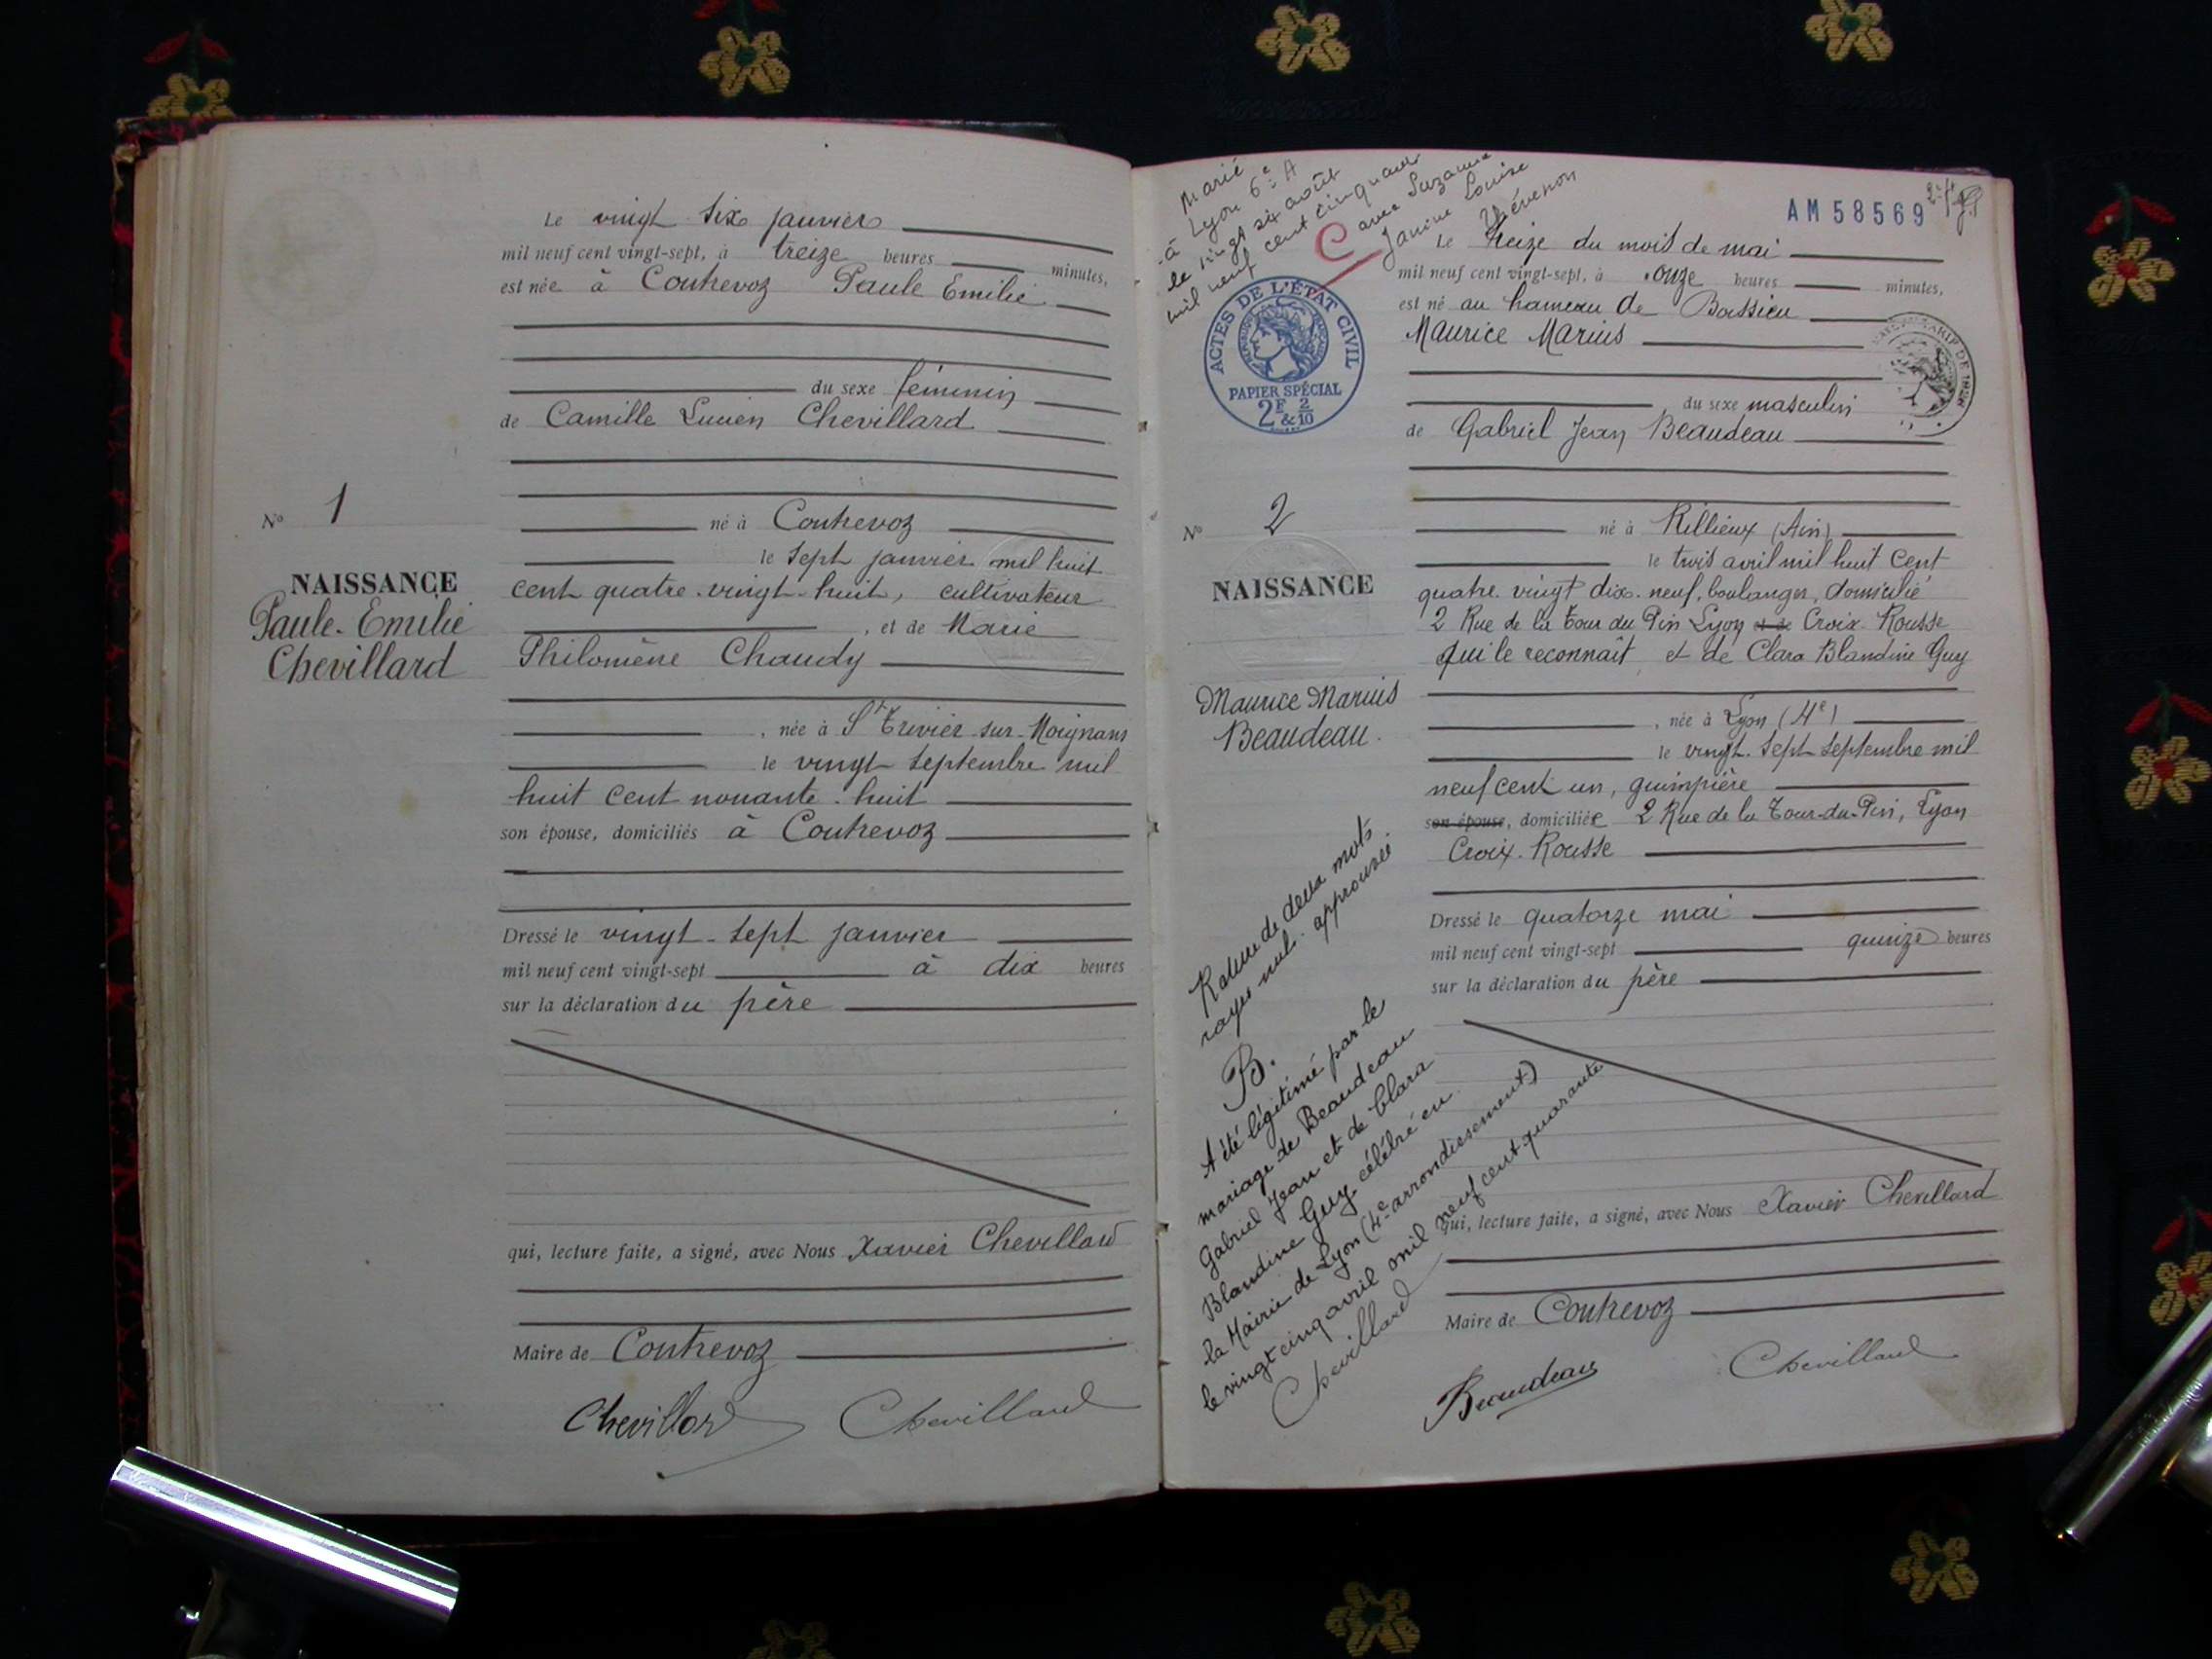 Le vingt six janvier
mil neuf cent vingt-sept, à treize heures minutes,
est née à Contrevoz Paule Emilie
du sexe féminin
de Camille Lucien Chevillard
né à Contrevoz
le sept janvier mil huit
cent quatre-vingt-huit, cultivateur
, et de Marie
Philomène Chaudy
, née à St Trivier-sur-Moignans
le vingt septembre mil
huit cent nonante-huit
son épouse, domiciliés à Contrevoz
Dressé le vingt-sept janvier
mil neuf cent vingt-sept à dix heures
sur la déclaration du père
qui, lecture faite, a signé, avec Nous Xavier Chevillard
Maire de Contrevoz
Chevillard Chevillard
No 1
NAISSANCE
Paule-Emilie
Chevillard
Marié
à Lyon 6e A
le vingt six août
mil neuf cent cinquante
avec Suzanne
Janine Louise
Thévenon
C
AM 58569
ACTES DE L'ÉTAT CIVIL
RÉPUBLIQUE FRANÇAISE
PAPIER SPÉCIAL
2F & 2/10
TARIF DE 1926
Le treize du mois de mai
mil neuf cent vingt-sept, à onze heures minutes,
est né au hameau de Boissieu
Maurice Marius
du sexe masculin
de Gabriel Jean Beaudeau
né à Rillieux (Ain)
le trois avril mil huit cent
quatre-vingt dix-neuf, boulanger, domicilié
2 Rue de la Tour du Pin Lyon et de Croix-Rousse
qui le reconnaît et de Clara Blandine Guy
, née à Lyon (4e)
le vingt-sept septembre mil
neuf cent un, guimpière
son épouse, domiciliée 2 Rue de la Tour-du-Pin, Lyon
Croix-Rousse
Dressé le quatorze mai
mil neuf cent vingt-sept quinze heures
sur la déclaration du père
qui, lecture faite, a signé, avec Nous Xavier Chevillard
Maire de Contrevoz
Beaudeau Chevillard
No 2
NAISSANCE
Maurice Marius
Beaudeau.
Rature de deux mots
rayés nuls approuvée.
B.
A été légitimé par le
mariage de Beaudeau
Gabriel Jean et de Clara
Blandine Guy célébré en
la Mairie de Lyon (4e arrondissement)
le vingt cinq avril mil neuf cent quarante
Chevillard